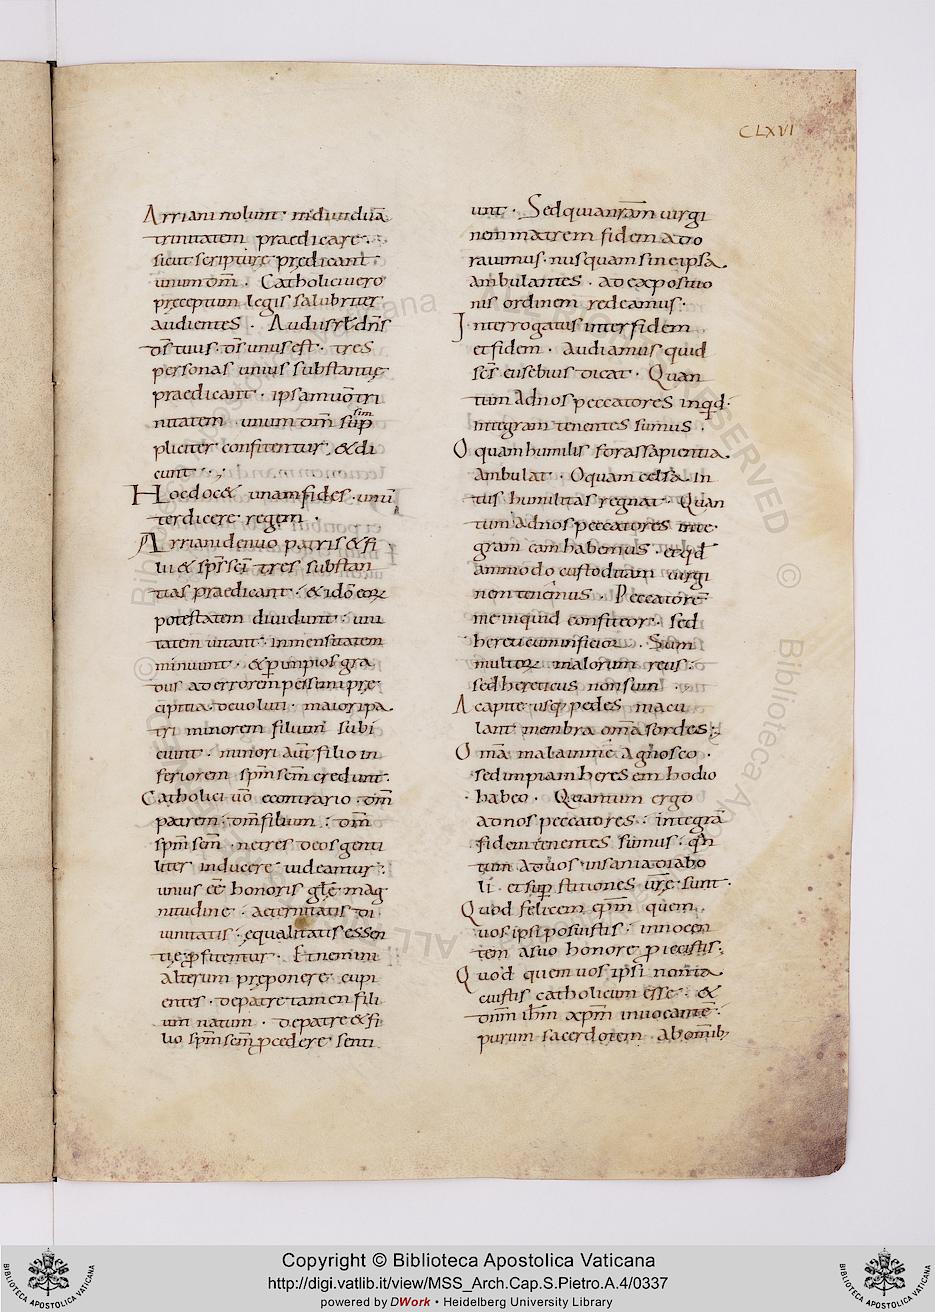 CLXVI
Arriani nolunt · individuā
trinitatem praedicare ·
sicut scripturę prędicant
unum dm̄ · Catholici vero
pręceptum legis salubriter
audientes · Audi isrl dn̄s
ds̄ tuus · ds̄ unus est · tres
personas unius substantię
praedicant · ipsam uō tri
nitatem · unum dm̄
pliciter confitentur, & di
cunt
Hoc doc& unam fides · unū
ter dicere regem ·
Arriani denuo patris & fi
lii & sp̄s sc̄i tres substan
tias praedicant · & ido
potestatem dividunt · uni
tatem vitant · inmensitatem
minuunt · & p impios gra
dus ad errorem pessimi prę
cipitia devoluti · maiori pa
tri minorem filium subi
ciunt · minori aūt filio in
feriorem spm̄ scm̄ credunt ·
Catholici uō econtrario · dm̄
patrem · dm̄ filium · dm̄
spm̄ scm̄ · ne tres deos genti
liter inducere videantur ·
unius eē honoris glē mag
nitudine · aeternitatis di
vinitatis · ęqualitatis essen
tię ꝓfitentur · Et nemini
alterum pręponere cupi
entes · de patre tamen fili
um natum · de patre & fi
lio spm̄ scm̄ ꝓcedere senti
unt · Sed quia nrām virgi
nem matrem fidem ado
ravimus · nusquam sine ipsa
ambulantes · ad expositio
nis ordinem redeamus ·
Interrogatus inter fidem
et fidem · audiamus quid
scs̄ eusebius dicat · Quan
tum ad nos peccatores inqd ·
integram tenentes sumus ·
O quam humilis foras sapientia
ambulat · O quam celsa in
tus humilitas regnat · Quan
tum ad nos peccatores inte
gram eam habemus · et qd
ammodo custoditam virgi
nem tenemus · Peccatorē
me inquid confiteor · sed
hereticum inficior · Sum
multorꝝ malorum reus ·
sed hereticus non sum ·
A capite usq; pedes macu
lant membra omā sordes ;
Omā mala in me agnosco ·
sed impiam heresem hodio
habeo · Quantum ergo
ad nos peccatores · integrā
fidem tenentes sumus ·
tum ad vos · insania diabo
li · et supstitiones urē sunt ·
Quod felicem epm̄ quem
vos ipsi posuistis · innocen
tem a suo honore proiecistis ·
Quod quem vos ipsi nomina
cuistis catholicum esse · &
dnm̄ ihm̄ xpm̄ invocante
purum sacerdotem · ab omīb;
Copyright © Biblioteca Apostolica Vaticana
http://digi.vatlib.it/view/MSS_Arch.Cap.S.Pietro.A.4/0337
powered by DWork • Heidelberg University Library